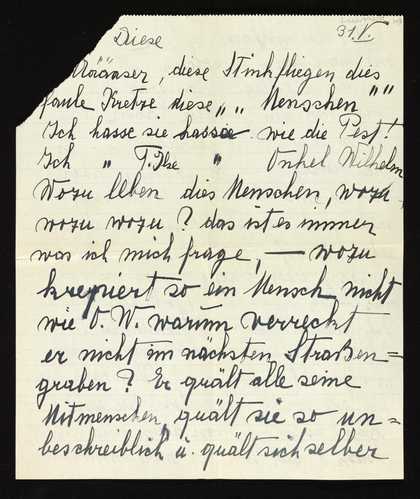 31.V.
Diese
diese Stinkfliegen dies
faule Kretze diese „ „ Menschen " "
Ich hasse sie hasse wie die Pest!
Ich „ T. Ilse „ Onkel Wilhelm
Wozu leben dies Menschen, wozu
wozu wozu? das ist es immer
was ich mich frage, — wozu
krepiert so ein Mensch nicht
wie O. W. warum verreckt
er nicht im nächsten Straßen=
graben? Er quält alle seine
Mitmenschen, quält sie so un=
beschreiblich u. quält sich selber